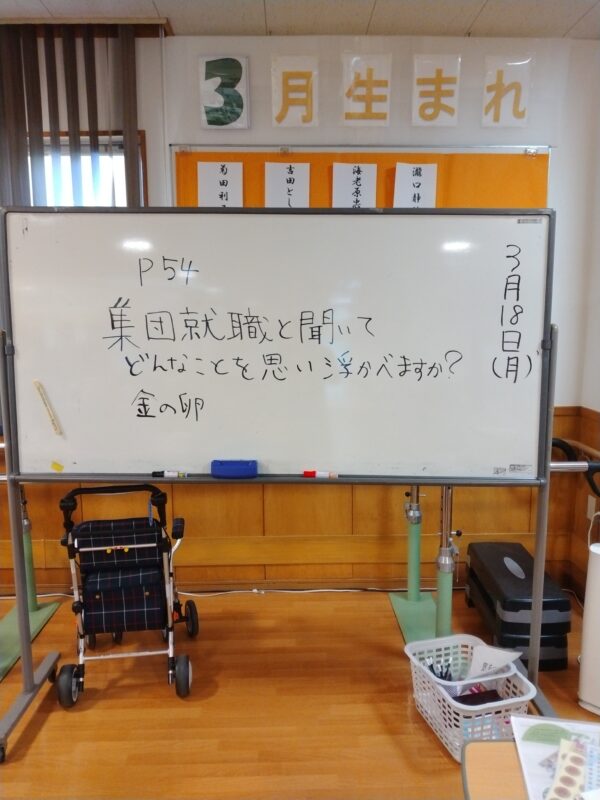 3月生まれ
菊田利
吉田とし
海老原忠
瀧口静
P54
集団就職と聞いて
どんなことを思い浮かべますか?
金の卵
3月18日(月)